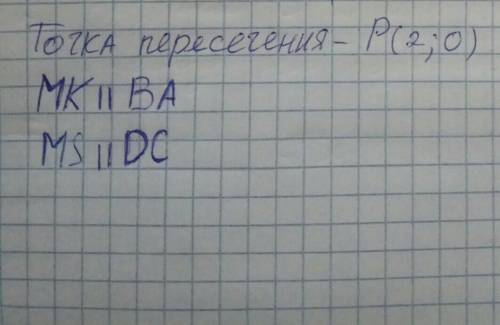 Точка пересечения - P(2;0)
MK || BA
MS || DC